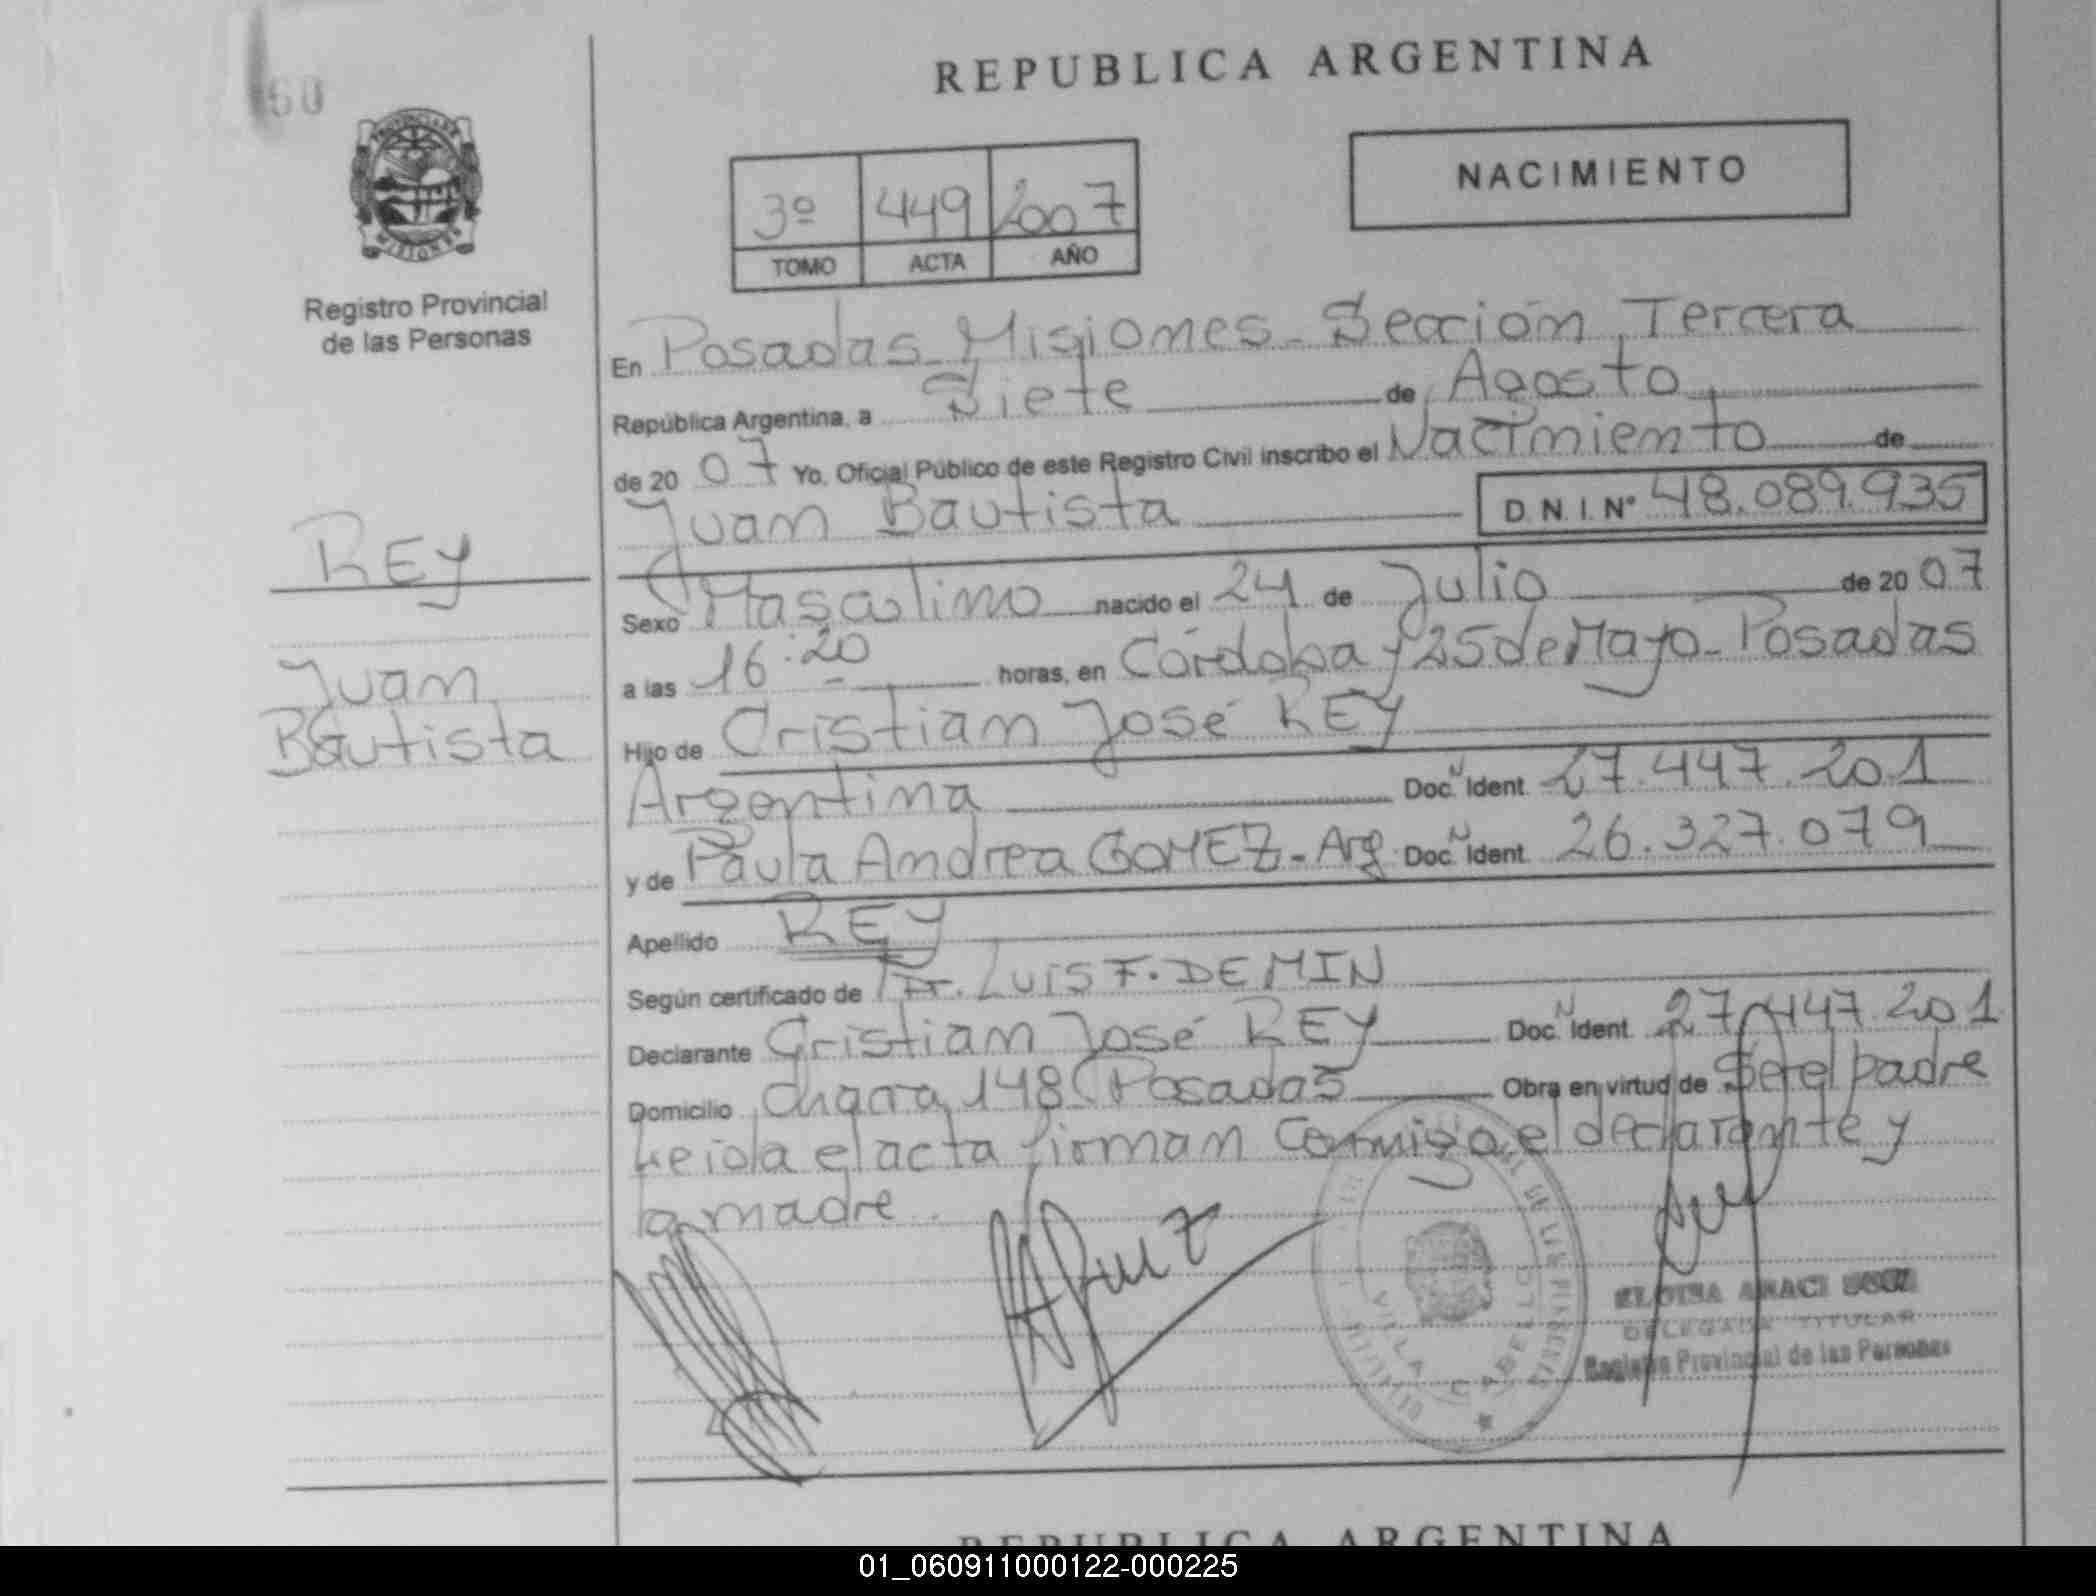 60
REPUBLICA ARGENTINA
PROVINCIA DE
MISIONES
Registro Provincial
de las Personas
3º 449 2007
TOMO ACTA AÑO
NACIMIENTO
En Posadas Misiones - Sección Tercera
República Argentina, a Siete de Agosto
de 20 07 Yo, Oficial Público de este Registro Civil inscribo el Nacimiento de
Juan Bautista D.N.I. Nº 48.089.935
REY
Juan
Bautista
Sexo Masculino nacido el 24 de Julio de 20 07
a las 16:20 horas, en Córdoba y 25 de Mayo - Posadas
Hijo de Cristian José REY
Argentina Doc. N Ident. 27.447.201
y de Paula Andrea GOMEZ - Arg. Doc. N Ident. 26.327.079
Apellido REY
Según certificado de Dr. LUIS F. DEMIN
Declarante Cristian José REY Doc. N Ident. 27.447.201
Domicilio Chacra 148 Posadas Obra en virtud de Ser el padre
Leida el acta firman Conmigo el declarante y
la madre.
VILLA CABELLO
DE LAS PERSONAS
ELOISA ARACI
DELEGADA TITULAR
Registro Provincial de las Personas
REPUBLICA ARGENTINA
01_060911000122-000225